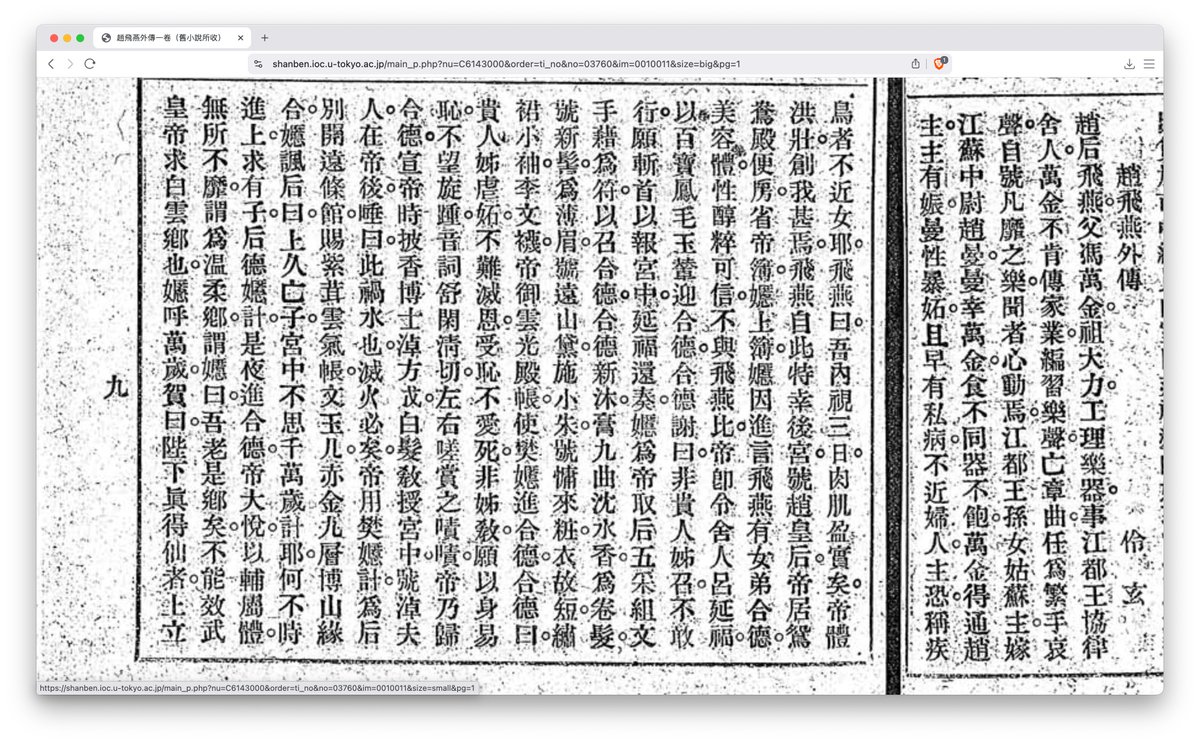 趙飛燕外傳一卷（舊小說所收）
shanben.ioc.u-tokyo.ac.jp/main_p.php?nu=C6143000&order=ti_no&no=03760&im=0010011&size=big&pg=1
1
趙飛燕外傳 伶玄
趙后飛燕父馮萬金。祖大力。工理樂器。事江都王協律
舍人。萬金不肯傳家業。編習樂聲。亡章曲。任爲繁手哀
聲。自號凡靡之樂。聞者心動焉。江都王孫女姑蘇主嫁
江蘇中尉趙曼。曼幸萬金。食不同器不飽。萬金得通趙
主。主有娠。曼性暴妬。且早有私病。不近婦人。主恐。稱疾
鳥者不近女耶。飛燕曰。吾內視三日。肉肌盈實矣。帝體
洪壯。創我甚焉。飛燕自此特幸後宮。號趙皇后。帝居鴛
鴦殿便房。省帝簿。嬺上簿。嬺因進言。飛燕有女弟合德。
美容體。性醇粹可信。不與飛燕比。帝卽令舍人呂延福。
以百寶鳳毛玉輦迎合德。合德謝曰。非貴人姊召不敢
行。願斬首以報宮中。延福還奏。嬺爲帝取后五采組文
手藉爲符。以召合德。合德新沐。膏九曲沈水香。爲卷髮。
號新髻。爲薄眉。號遠山黛。施小朱。號慵來粧。衣故短。繡
裙小袖李文襪。帝御雲光殿帳。使樊嬺進合德。合德曰。
貴人姊虐妬。不難滅恩。受恥不愛死。非姊敎。願以身易
恥。不望旋踵。音詞舒閑清切。左右嗟賞之嘖嘖。帝乃歸
合德。宣帝時披香博士淖方成。白髮敎授宮中。號淖夫
人。在帝後。唾曰。此禍水也。滅火必矣。帝用樊嬺計。爲后
別開遠條館。賜紫茸雲氣帳。文玉几。赤金九層博山緣
合。嬺諷后曰。上久亡子。宮中不思千萬歲計耶。何不時
進上求有子。后德嬺計。是夜進合德。帝大悅。以輔屬體。
無所不靡。謂爲溫柔鄉。謂嬺曰。吾老是鄉矣。不能效武
皇帝求白雲鄉也。嬺呼萬歲。賀曰。陛下眞得仙者。上立
九
https://shanben.ioc.u-tokyo.ac.jp/main_p.php?nu=C6143000&order=ti_no&no=03760&im=0010011&size=small&pg=1